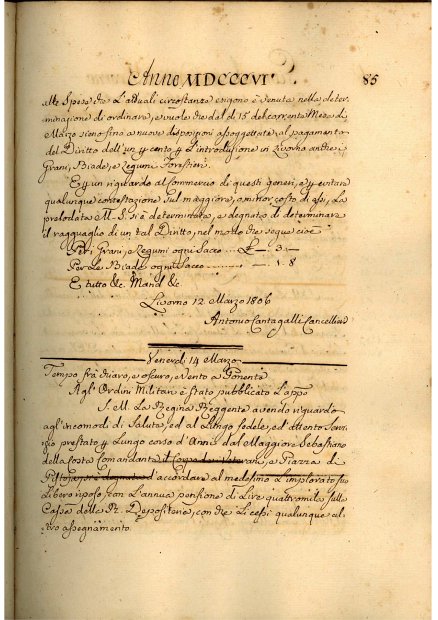 Anno MDCCCVI 85
alle Spese che l'attuali circostanze esigono è venuta nella deter-
minazione di ordinare, e vuole che dal dì 15 del corrente Mese di
Marzo sieno fino a nuove disposizioni assoggettate al pagamento
del Diritto dell'un p cento p l'introduzione in Livorno anche i
Grani, Biade, e Legumi Forestieri.
E p un riguardo al Commercio di questi generi, e p evitare
qualunque contestazione sul maggiore, o minor costo di essi, La
prelodata M. S. si è determinata, e degnata di determinare
il ragguaglio di un tal Diritto, nel modo che segue cioè
Per i Grani, e Legumi ogni Sacco £ — 3. —
Per Le Biade ogni Sacco — 1. 8
E tutto &c. Mand. &c.
Livorno 12 Marzo 1806
Antonio Cantagalli Cancelliere
Venerdì 14 Marzo
Tempo frà chiaro, e oscuro, e vento a Ponente
Agl'Ordini Militari è stato pubblicato l'app.
S. M. La Regina Reggente avendo riguardo
agl'incomodi di Salute, ed al Lungo fedele, ed attento Ser-
vizio prestato p Lungo corso d'Anni dal Maggiore Sebastiano
della Costa Comandante il Corpo dei Veterani, e Piazza di
Pistoja, si è degnata d'accordare al medesimo L'implorato suo
Libero riposo con l'annua pensione di Lire quattromila sulla
Cassa della R. Depositeria, con che Li cessi qualunque al-
tro assegnamento.